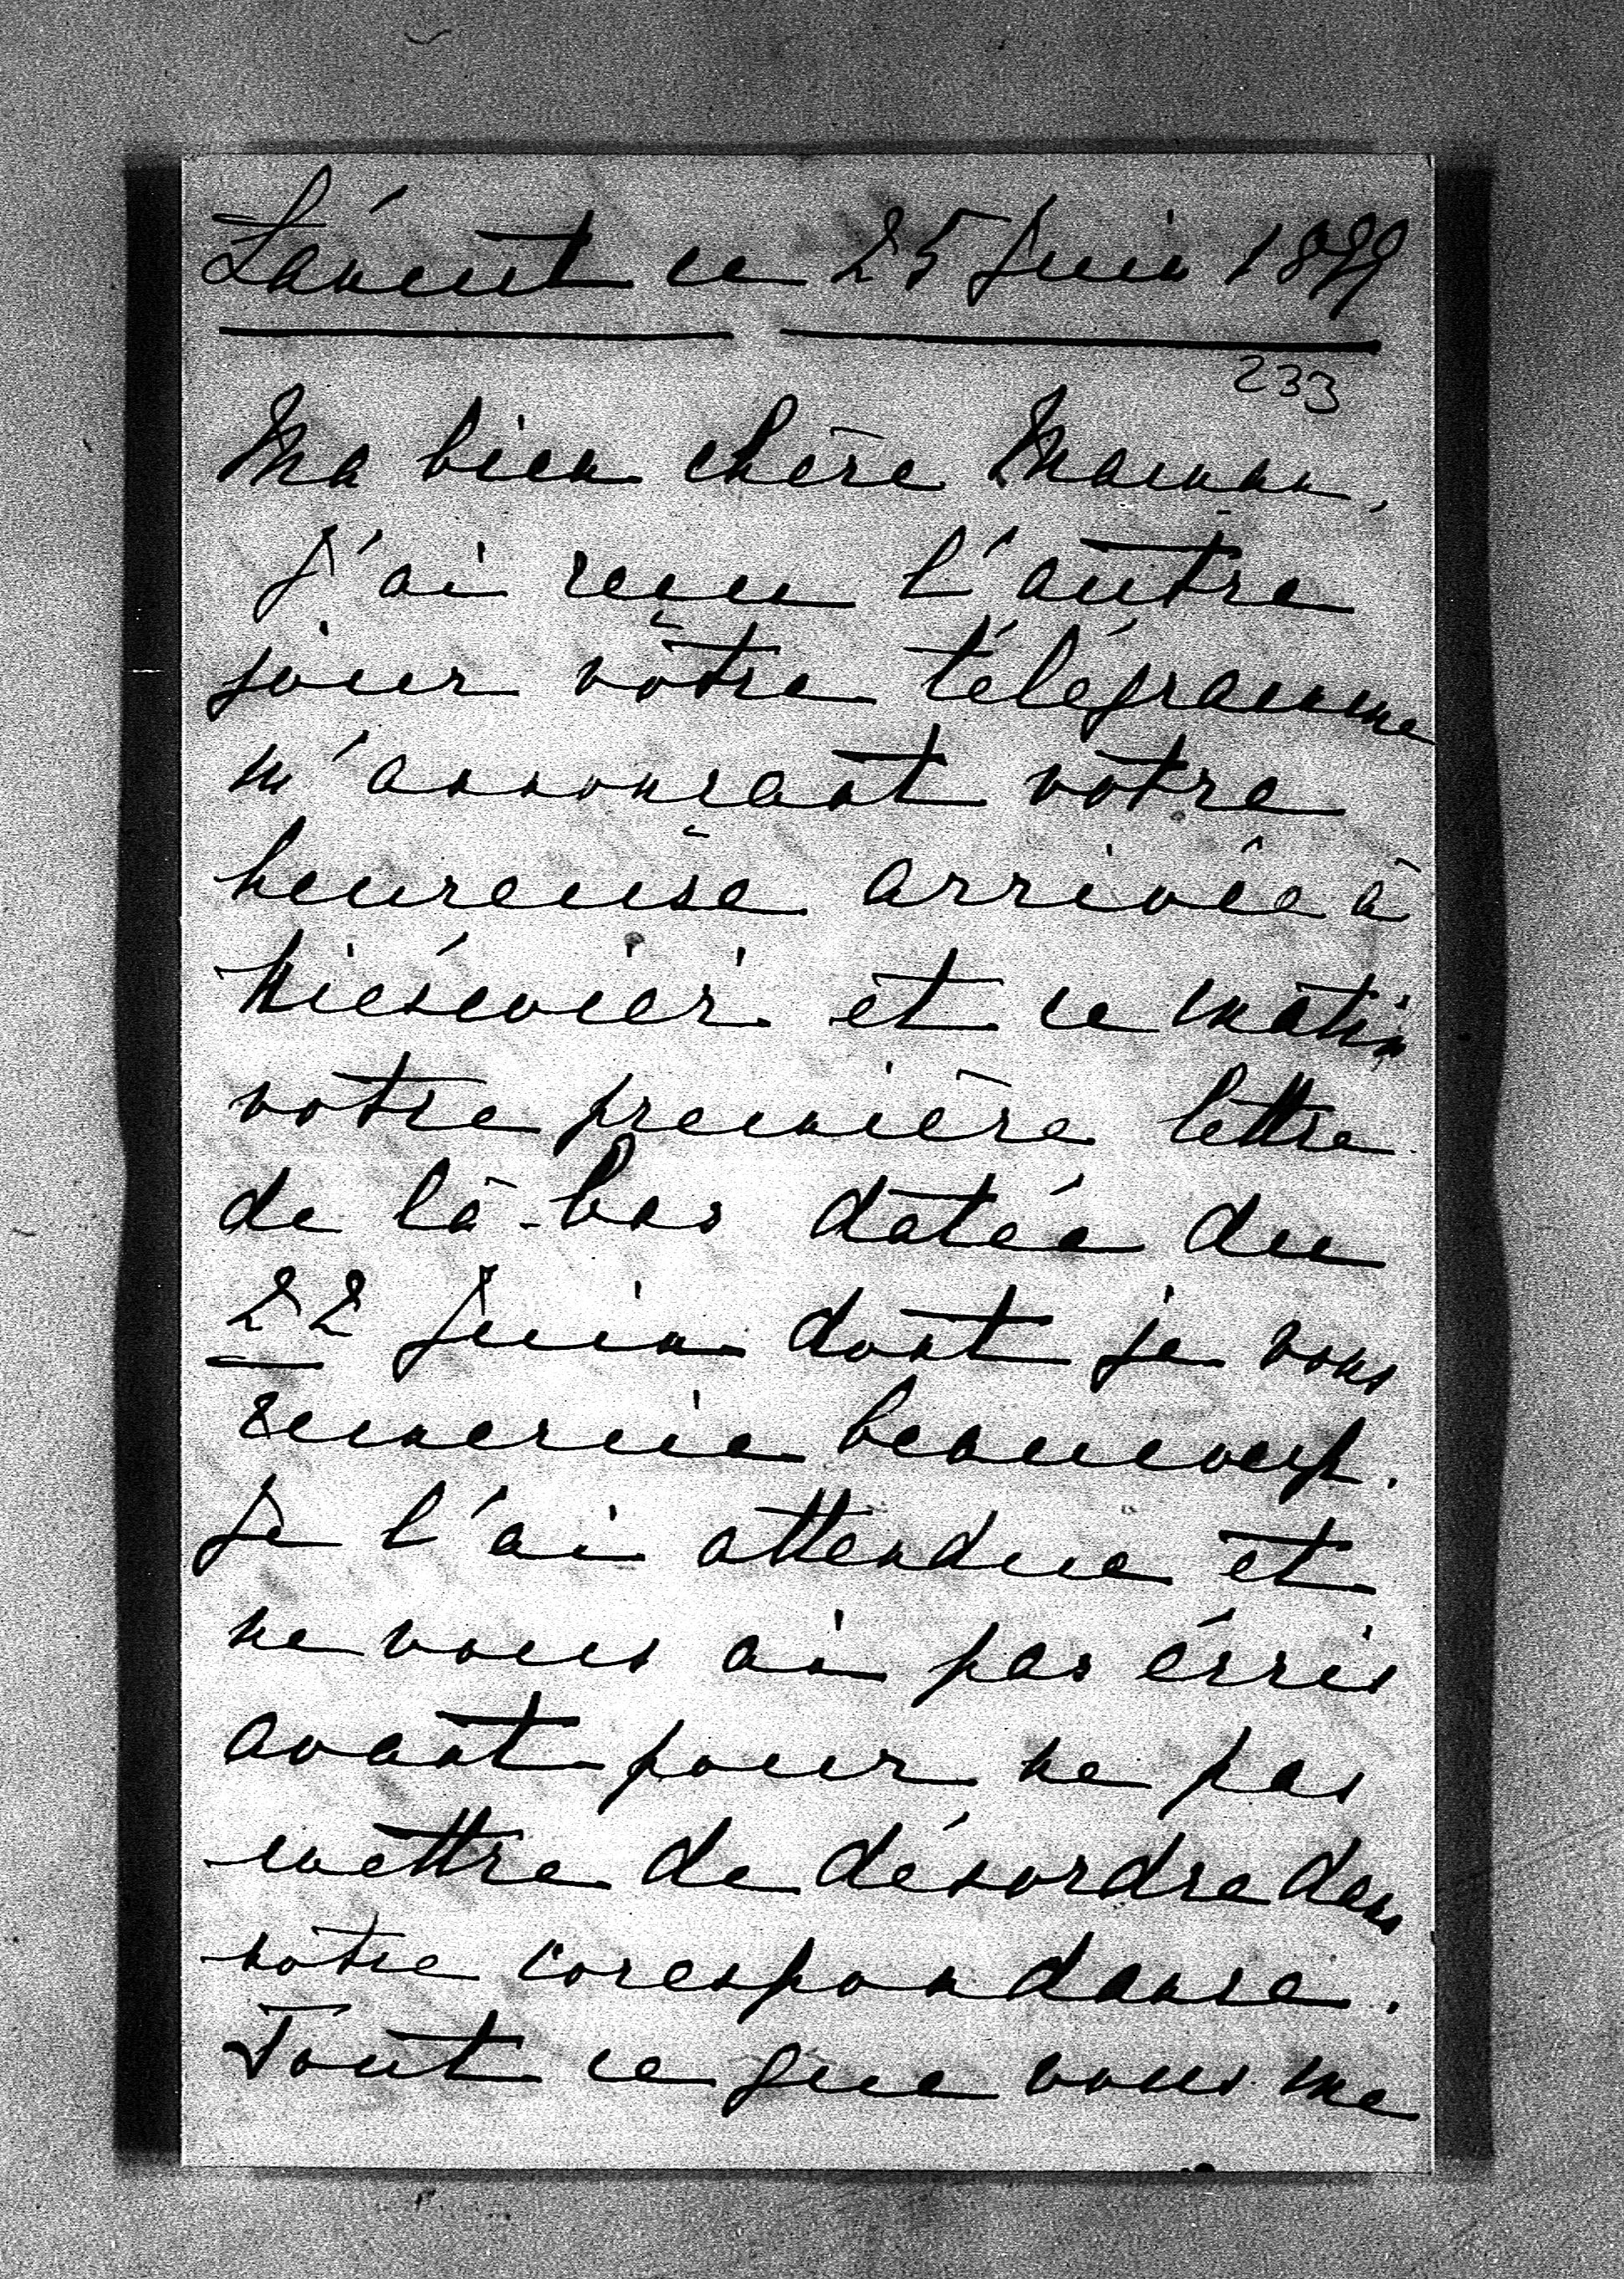 ce 25 Juin 1899
233
Ma bien chère Maman,
J'ai reçu l'autre
jour votre télégramme
m'annonçant votre
heureuse arrivée à
et ce matin
votre première lettre
de là-bas datée du
22 Juin dont je vous
remercie beaucoup.
Je l'ai attendue et
ne vous ai pas écris
avant pour ne pas
mettre de désordre dans
notre corespondanse.
Tout ce que vous me